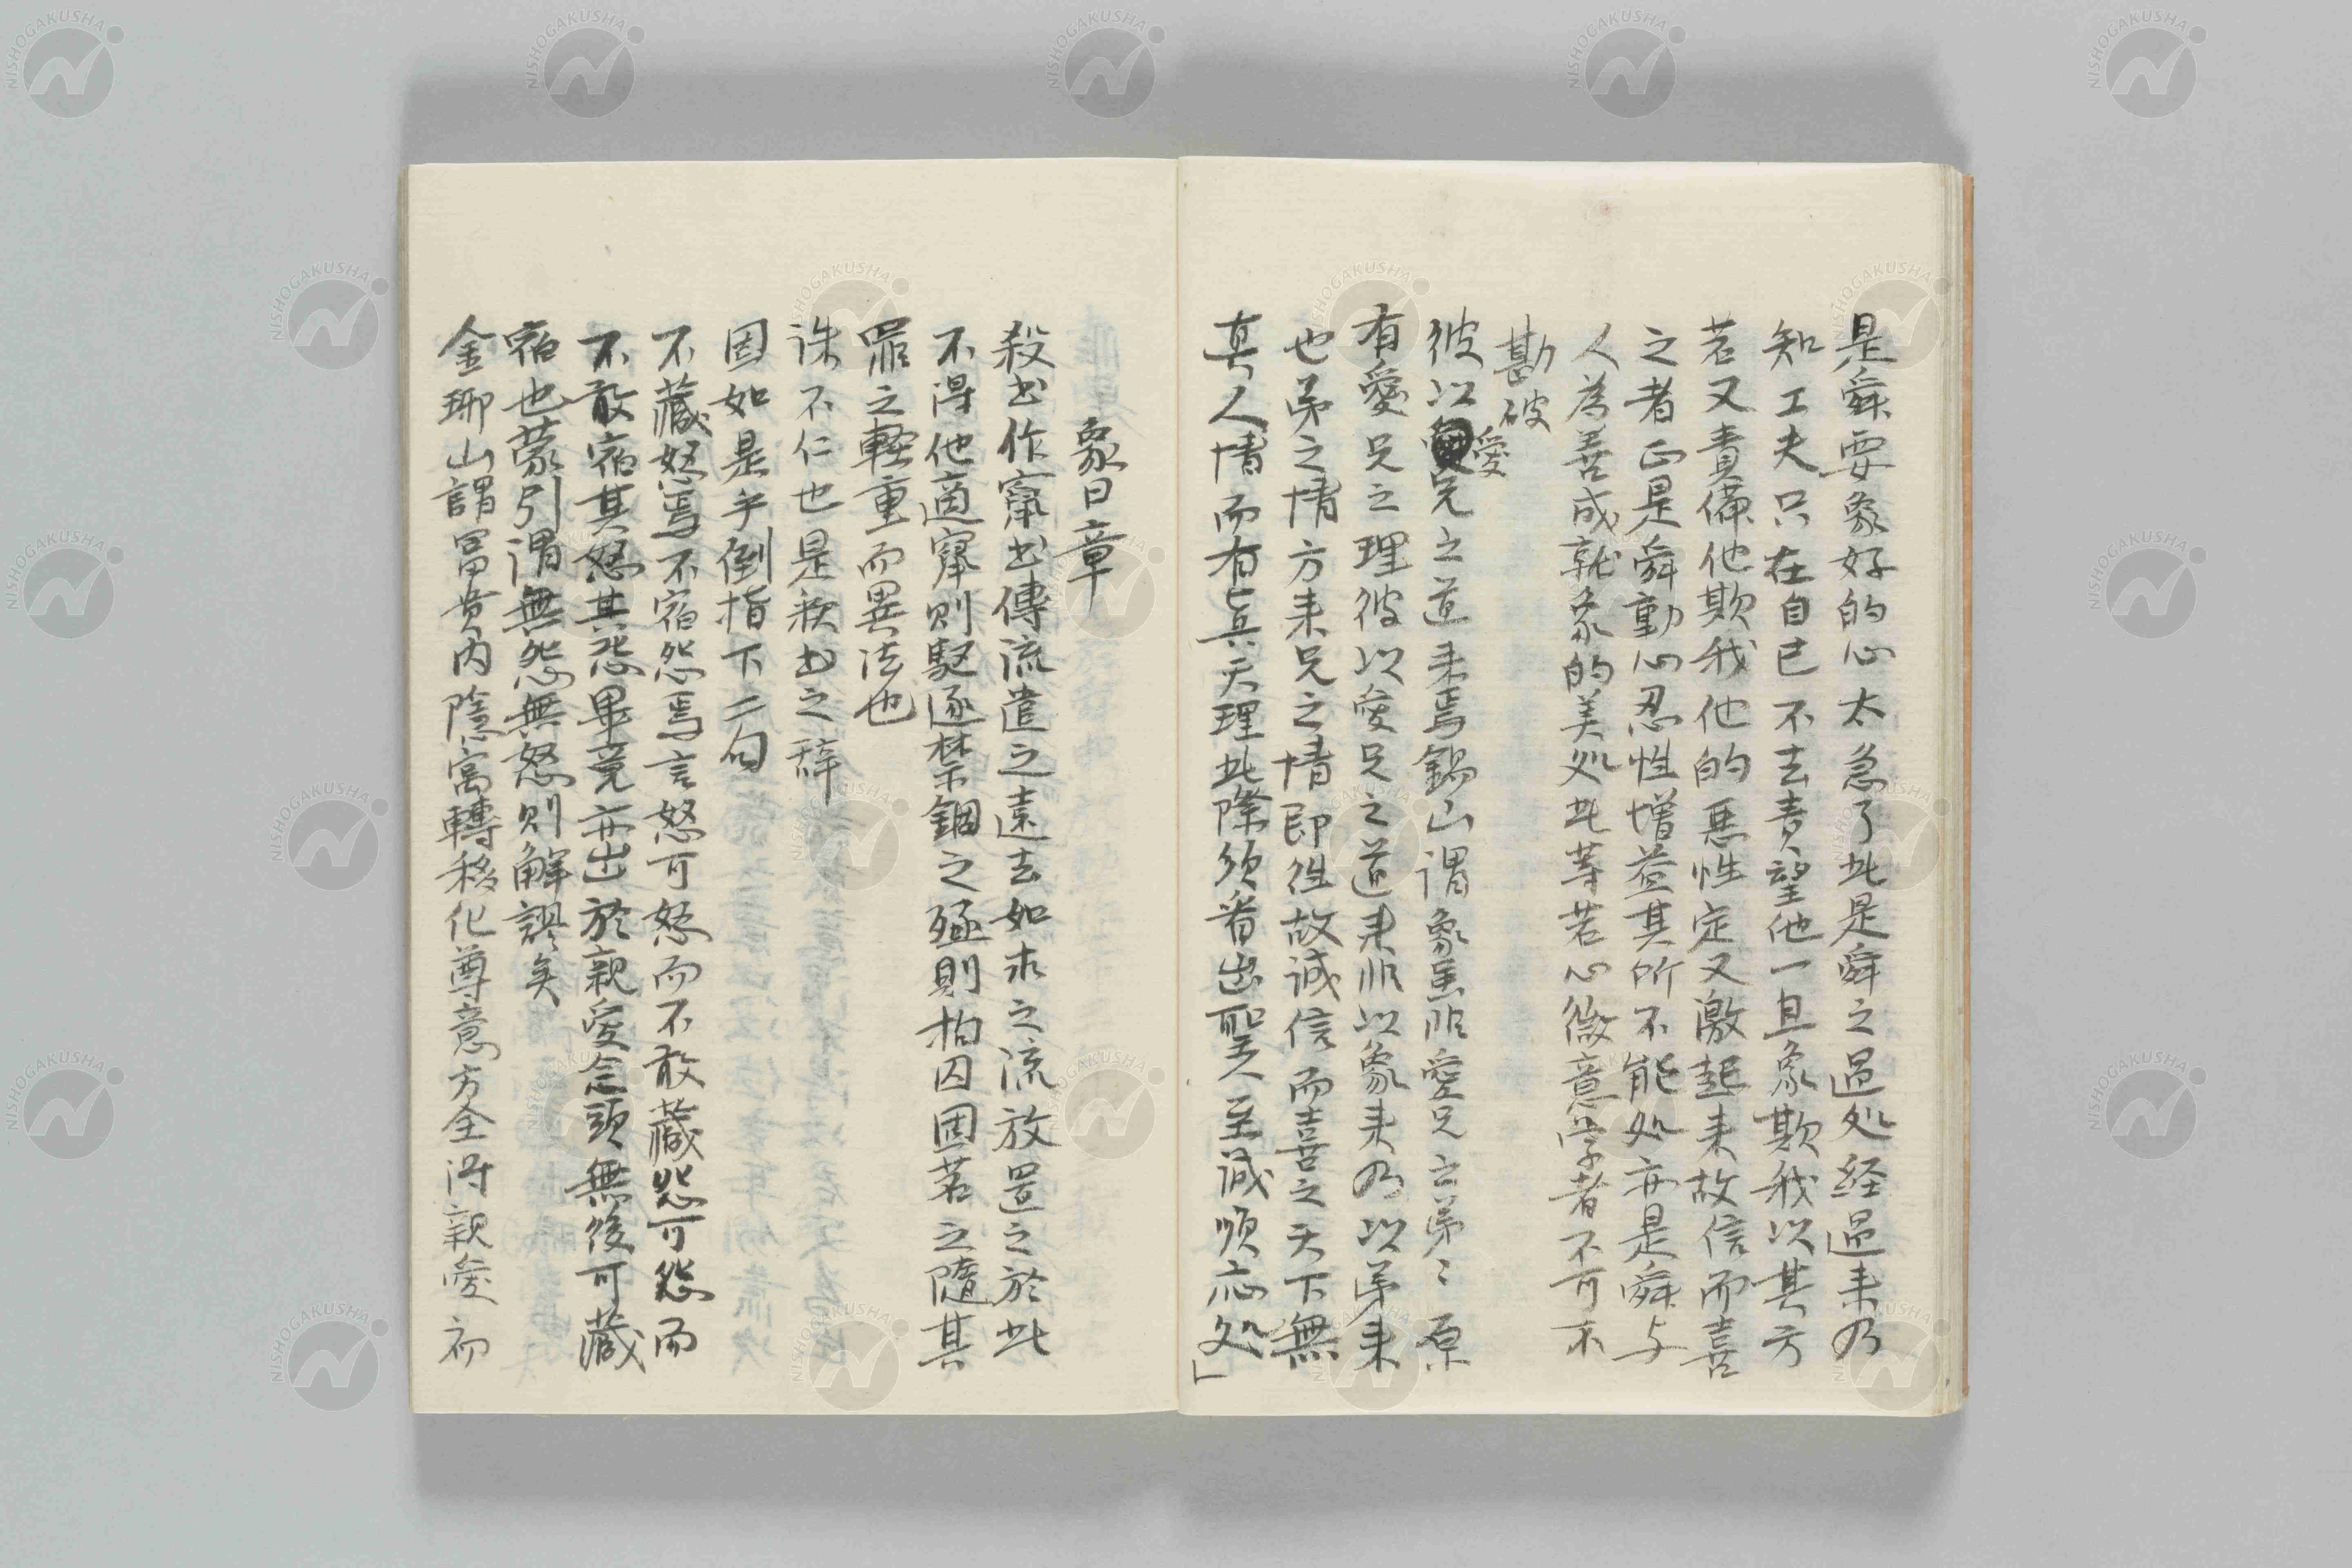 是舜要象好的心太急了此是舜之過処経過来乃
知工夫只在自己不去責望他一旦象欺我以其方
若又責備他欺我他的悪性定又激起来故信而喜
之者正是舜動心忍性増益其所不能処亦是舜与
人為善成就象的美処此等若心微意学者不可不
勘破
彼以愛兄之道来焉鍋山謂象虽非愛兄之弟〻原
有愛兄之理彼以愛兄之道来非以象来乃以弟来
也弟之情方来兄之情即往故誠信而喜之天下無
真人情而有真天理此際須看出聖人至誠順応処」
象日章
殺書作竄書傳流遣之遠去如水之流放置之於此
不得他適竄則駆逐禁錮之殛則拘囚困苦之隨其
罪之軽重而異法也
誅不仁也是秋書之辞
固如是乎倒指下二句
不藏怒焉不宿怨焉言怒可怒而不敢藏怨可怨而
不敢宿其怒其怨畢竟亦出於親愛念頭無後可藏
宿也蒙引謂無怨無怒則解謬矣
金瑘山謂冨貴内隠寓轉移化導意方全得親愛初
NISHOGAKUSHA